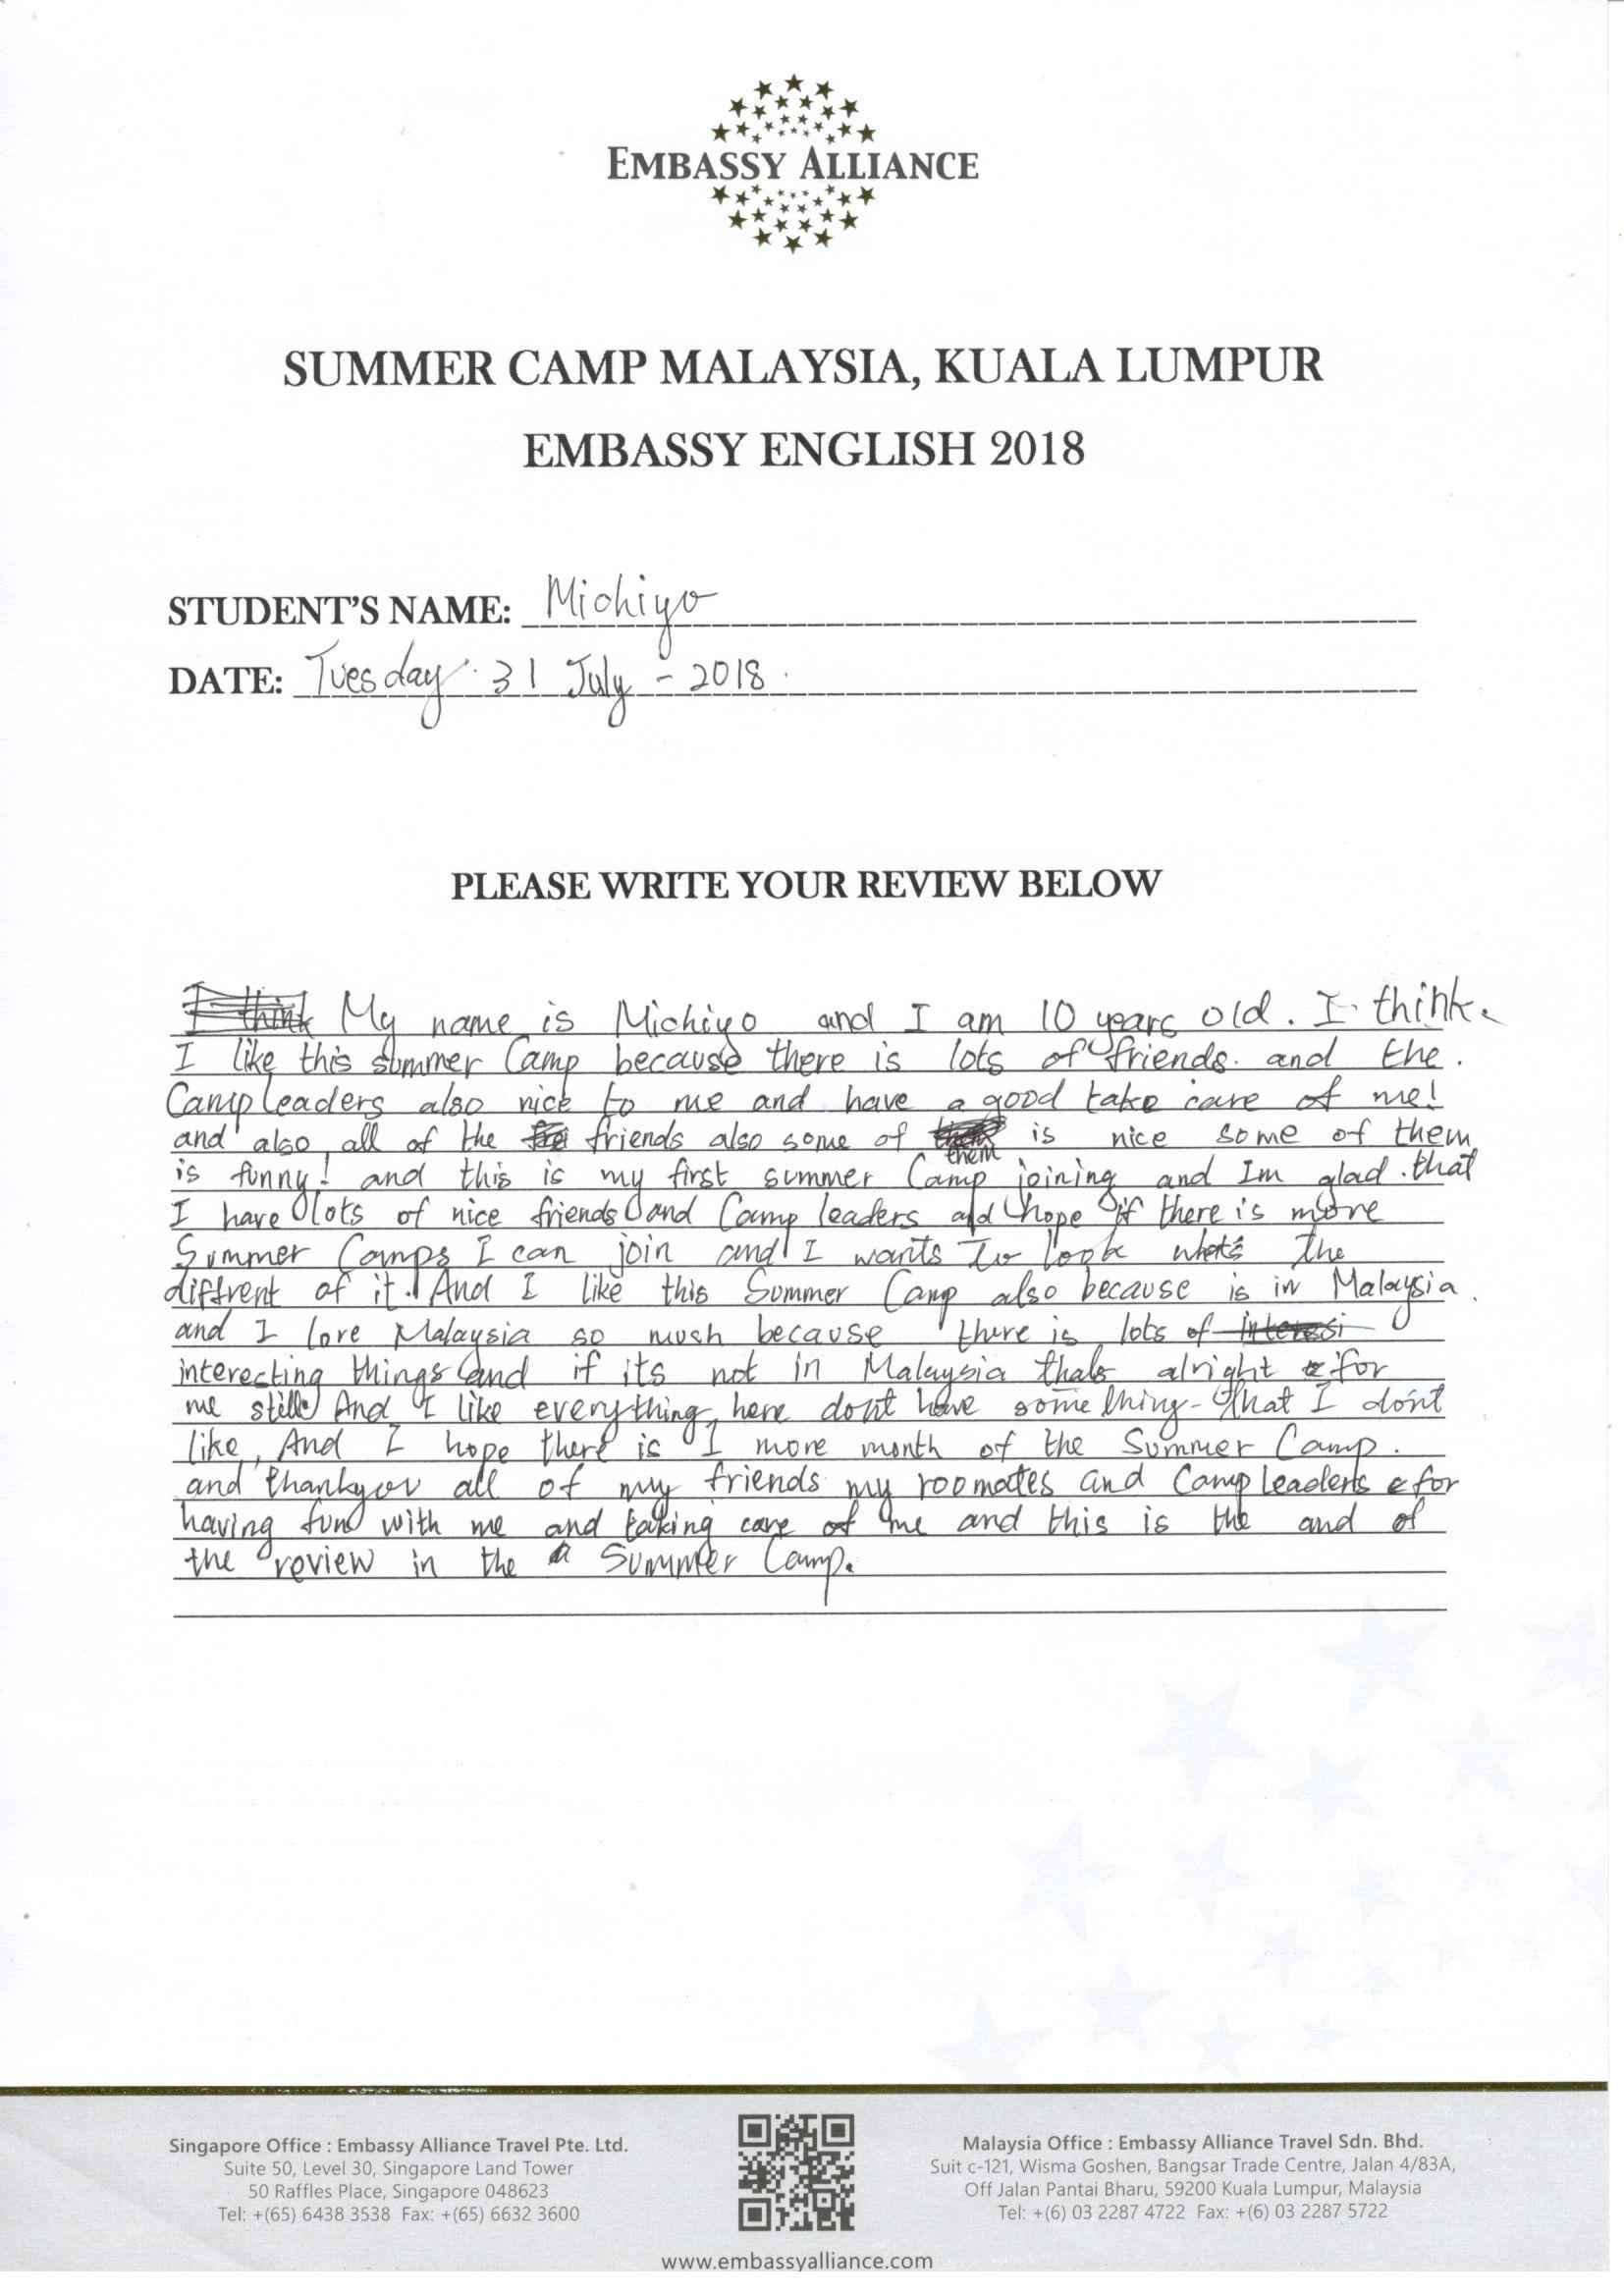 EMBASSY ALLIANCE
SUMMER CAMP MALAYSIA, KUALA LUMPUR
EMBASSY ENGLISH 2018
STUDENT'S NAME: Michiyo
DATE: Tuesday. 31 July - 2018.
PLEASE WRITE YOUR REVIEW BELOW
I think My name is Michiyo and I am 10 years old. I think.
I like this summer Camp because there is lots of friends. and the.
Camp leaders also nice to me and have a good take care of me!
and also all of the friends also some of them is nice some of them
is funny! and this is my first summer Camp joining and Im glad. that
I have lots of nice friends and Camp leaders and hope if there is more
Summer Camps I can join and I wants to look whats the
diffrent of it. And I like this Summer Camp also because is in Malaysia.
and I love Malaysia so mush because there is lots of interessi
interecting things and if its not in Malaysia thats alright for
me still. And I like everything here dont have some thing - that I don't
like, And I hope there is 1 more month of the Summer Camp.
and thankyou all of my friends my roomates and Camp leaders for
having fun with me and taking care of me and this is the and of
the review in the a Summer Camp.
Singapore Office : Embassy Alliance Travel Pte. Ltd.
Suite 50, Level 30, Singapore Land Tower
50 Raffles Place, Singapore 048623
Tel: +(65) 6438 3538 Fax: +(65) 6632 3600
Malaysia Office : Embassy Alliance Travel Sdn. Bhd.
Suit c-121, Wisma Goshen, Bangsar Trade Centre, Jalan 4/83A,
Off Jalan Pantai Bharu, 59200 Kuala Lumpur, Malaysia
Tel: +(6) 03 2287 4722 Fax: +(6) 03 2287 5722
www.embassyalliance.com